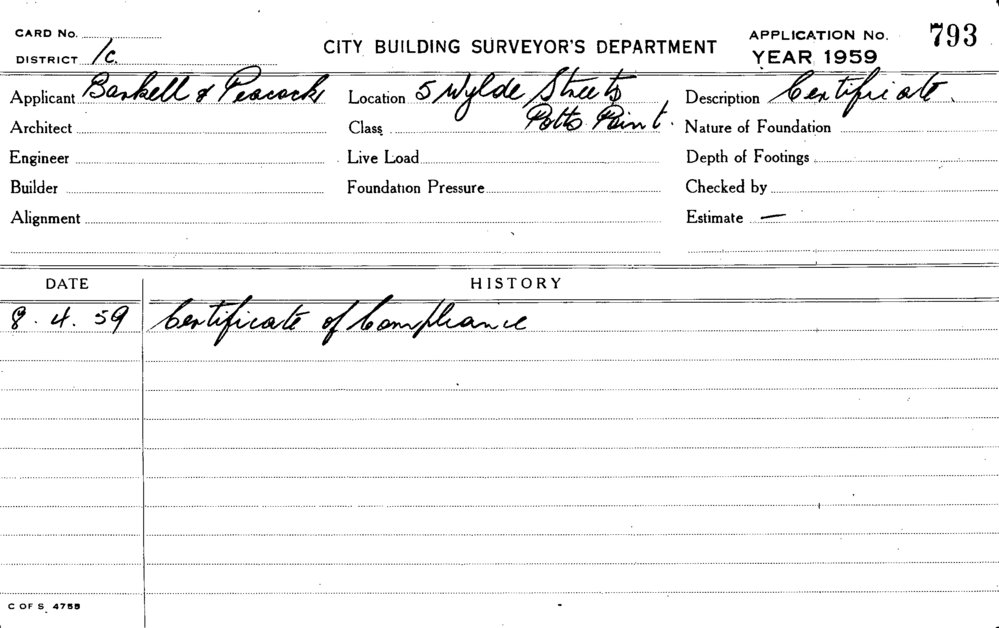 CARD No.
DISTRICT 1c.
CITY BUILDING SURVEYOR'S DEPARTMENT
APPLICATION No. 793
YEAR 1959
Applicant Barkell & Peacock
Location 5 Wylde Street
Potts Point.
Description Certificate.
Architect
Class
Nature of Foundation
Engineer
Live Load
Depth of Footings
Builder
Foundation Pressure
Checked by
Alignment
Estimate —
DATE HISTORY
8. 4. 59 Certificate of Compliance
C OF S. 4758